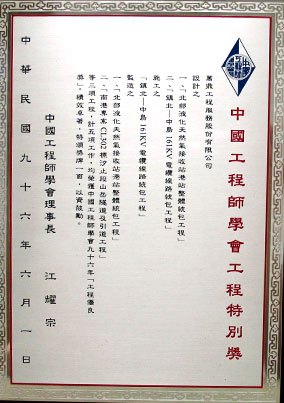 中國工程師學會工程特別獎
萬鼎工程服務股份有限公司
設計之
一、「北部液化天然氣接收站港站整體統包工程」
二、「鎮北—中島161KV電纜線路統包工程」
施工之
「鎮北—中島161KV電纜線路統包工程」
監造之
一、「北部液化天然氣接收站港站整體統包工程」
二、「南港專案CL302標汐止段山岳隧道及引道工程」
等三項工程，計五項工作，均榮獲中國工程師學會九十六年「工程優良
獎」，績效卓著，特頒獎牌一面，以資鼓勵。
中國工程師學會理事長 江耀宗
中華民國九十六年六月一日